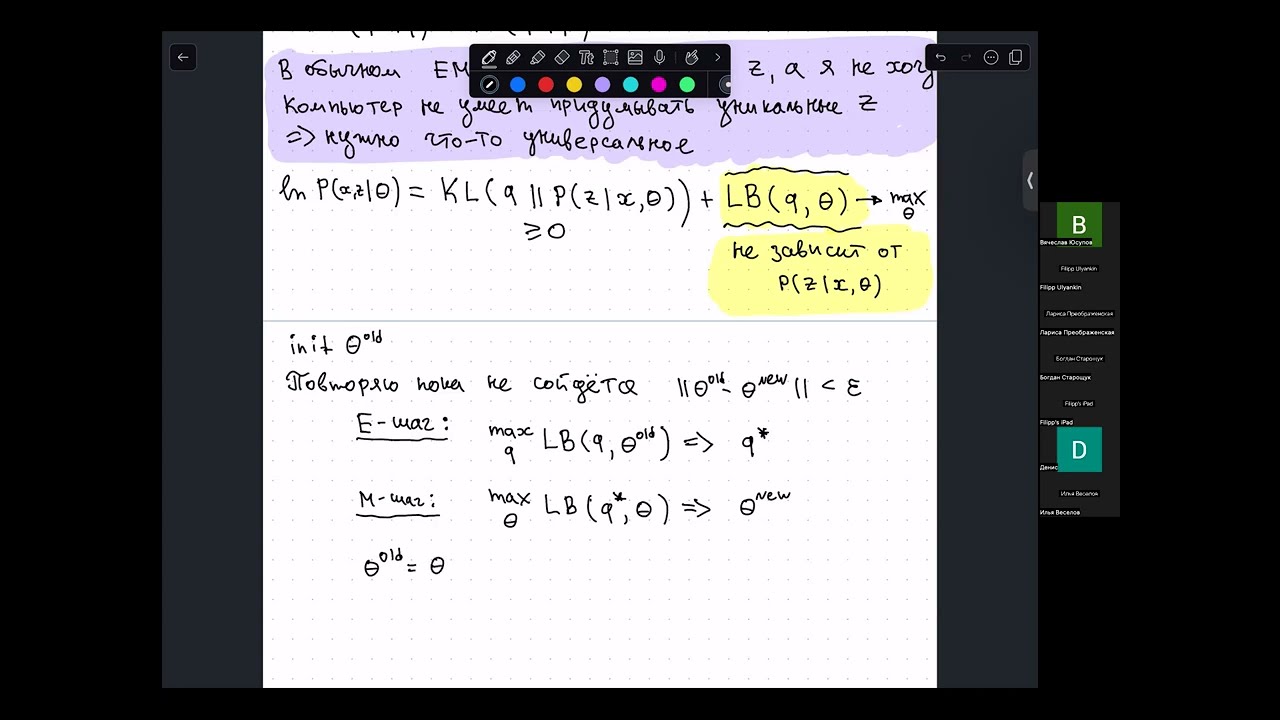 В обычном ЕМ z, а я не хочу
Компьютер не умеет придумывать уникальные z
=> нужно что-то универсальное
ln P(x,z|θ) = KL(q || P(z|x,θ)) + LB(q,θ) → max θ
≥0
не зависит от
P(z|x,θ)
init θ^old
Повторяю пока не сойдётся ||θ^old - θ^new|| < ε
E-шаг: max q LB(q, θ^old) => q*
M-шаг: max θ LB(q*, θ) => θ^new
θ^old = θ
Tt
B
Вячеслав Юсупов
Filipp Ulyankin
Filipp Ulyankin
Лариса Преображенская
Лариса Преображенская
Богдан Старощук
Богдан Старощук
Filipp's iPad
Filipp's iPad
D
Денис
Илья Веселов
Илья Веселов